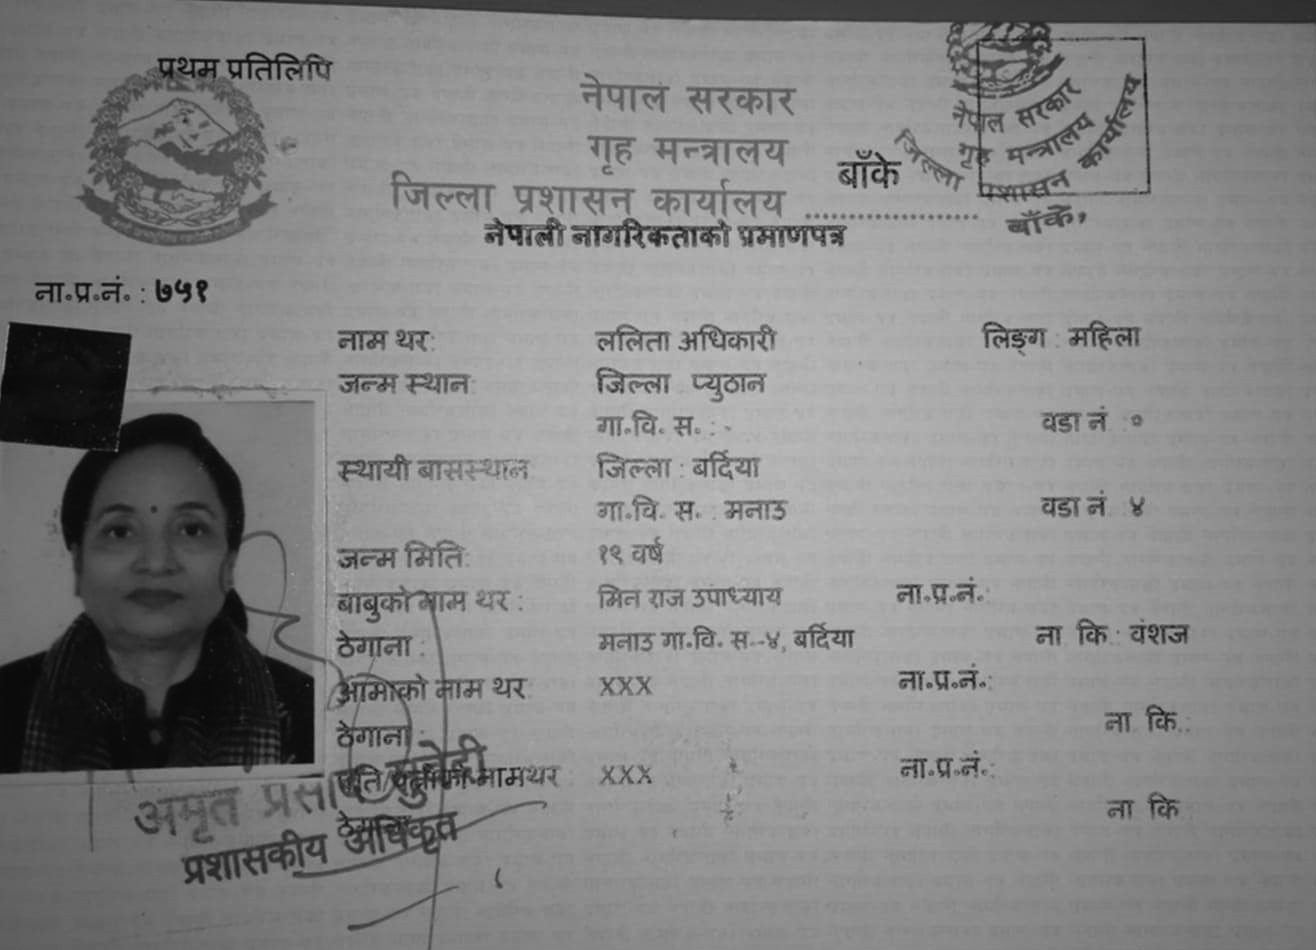 प्रथम प्रतिलिपि
नेपाल सरकार
गृह मन्त्रालय
जिल्ला प्रशासन कार्यालय .................... बाँके
नेपाली नागरिकताको प्रमाणपत्र
नेपाल सरकार
गृह मन्त्रालय
जिल्ला प्रशासन कार्यालय
बाँके,
ना.प्र.नं. : ७५१
नाम थर: ललिता अधिकारी लिङ्ग : महिला
जन्म स्थान: जिल्ला प्युठान
गा.वि. स. : - वडा नं. : ०
स्थायी बासस्थान जिल्ला : बर्दिया
गा.वि. स. : मनाउ वडा नं ४
जन्म मिति: १९ वर्ष
बाबुको नाम थर : मित राज उपाध्याय ना.प्र.नं.:
ठेगाना : मनाउ गा.वि. स.-४, बर्दिया ना कि.: वंशज
आमाको नाम थर: XXX ना.प्र.नं.:
ठेगाना : ना कि.:
नामथर : XXX ना.प्र.नं.:
ना कि
अमृत प्रसाद सुवेदी
प्रशासकीय अधिकृत